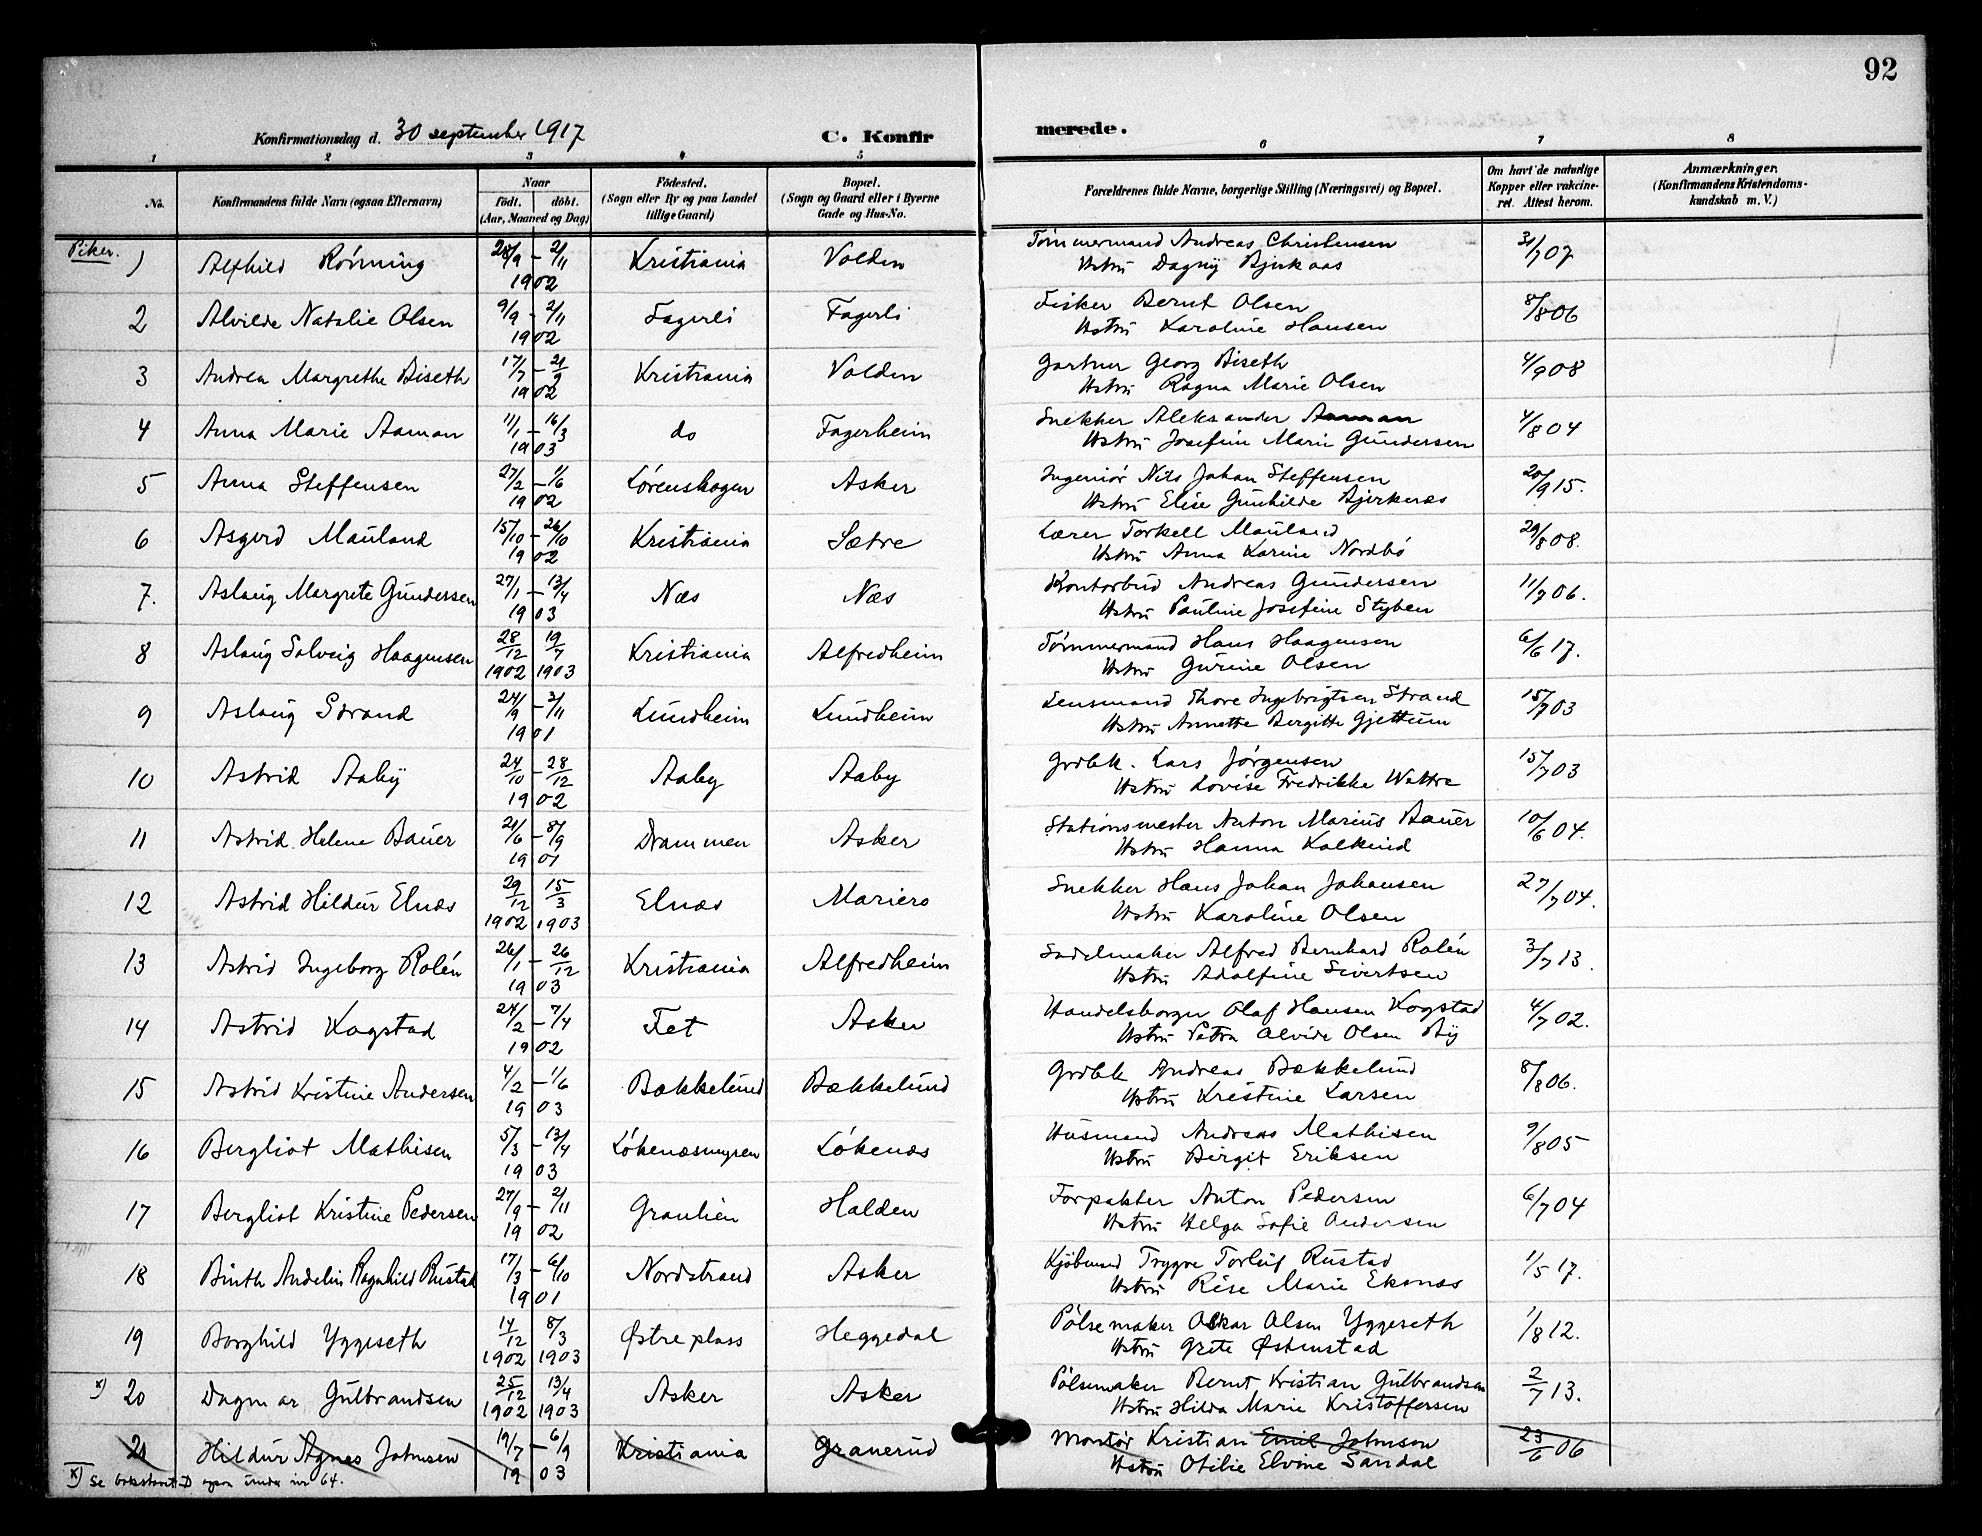 92
Konfirmationsdag d. 30 september 1917 C. Konfir merede.
1 2 3 4 5 6 7 8
No. Konfirmandens fulde Navn (ogsaa Efternavn) Naar født. døbt. (Aar, Maaned og Dag) Fødested. (Sogn eller By og paa Landet tillige Gaard) Bopæl. (Sogn og Gaard eller i Byerne Gade og Hus-No. Forældrenes fulde Navne, borgerlige Stilling (Næringsvei) og Bopæl. Om havt de naturlige Kopper eller vakcineret. Attest herom. Anmærkninger. (Konfirmandens Kristendomskundskab m. V.)
Piker.
1 Alfhild Rønning 28/9 – 2/11 Kristiania Volden Tømmermand Andreas Christensen 31/7 07
1902 Hstru Dagny Bjerkaas
2 Alvilde Natalie Olsen 9/9 – 2/11 Fagerli Fagerli Fisker Bernt Olsen 8/8 06
1902 Hstru Karoline Hansen
3 Andrea Margrethe Biseth 17/7 – 21/9 Kristiania Volden Gartner Georg Biseth 4/9 08
1902 Hstru Ragna Marie Olsen
4 Anna Marie Aaman 11/1 – 16/3 do Fagerheim Snekker Aleksander Aaman 4/8 04
1903 Hstru Josefine Marie Gundersen
5 Anna Steffensen 27/2 – 1/6 Lørenskogen Asker Ingeniør Nils Johan Steffensen 20/9 15.
1902 Hstru Elise Gunhilde Bjerkenæs
6 Asgerd Mauland 15/10 – 26/10 Kristiania Sætre Lærer Torkell Mauland 29/8 08.
1902 Hstru Anna Karine Nordbø
7. Aslaug Margrete Gundersen 27/1 – 13/4 Næs Næs Kontorbud Andreas Gundersen 11/7 06.
1903 Hstru Pauline Josefine Styben
8 Aslaug Solveig Haagensen 28/12 19/7 Kristiania Alfredheim Tømmermand Hans Haagensen 6/6 17.
1902 1903 Hstru Gurine Olsen
9 Aslaug Strand 24/9 – 3/11 Lundheim Lundheim Lensmand Thore Ingebrigtsen Strand 15/7 03
1901 Hstru Annette Bergitte Gjettum
10 Astrid Aaby 24/10 – 28/12 Aaby Aaby Grdbk. Lars Jørgensen 15/7 03
1902 Hstru Lovise Fredrikke Wettre
11 Astrid Helene Bauer 21/6 – 8/9 Drammen Asker Stationsmester Anton Marius Bauer 10/6 04.
1901 Hstru Hanna Kolkind
12 Astrid Hildur Elnæs 29/12 15/3 Elnæs Mariero Snekker Hans Johan Johansen 27/7 04.
1902 1903 Hstru Karoline Olsen
13 Astrid Ingeborg Rolén 26/1 – 26/12 Kristiania Alfredheim Sadelmaker Alfred Bernhard Rolén 3/7 13.
1903 Hstru Adolfine Sivertsen
14 Astrid Kogstad 24/2 – 7/4 Fet Asker Handelsborger Olaf Hansen Kogstad 4/7 02.
1902 Hstru Petra Alvide Olsen By
15 Astrid Kristine Andersen 4/2 – 1/6 Bækkelund Bækkelund Grdbk Andreas Bækkelund 8/8 06.
1903 Hstru Kristine Larsen
16 Bergliot Mathisen 5/3 – 13/4 Løkenæsmyren Løkenæs Husmand Andreas Mathisen 9/8 05
1903 Hstru Birgit Eriksen
17 Bergliot Kristine Pedersen 27/9 – 2/11 Graulien Halden Forpakter Anton Pedersen 6/7 04
1902 Hstru Helga Sofie Andersen
18 Binth Andelin Ragnhild Rustad 17/3 – 6/10 Nordstrand Asker Kjøbmnd Trygve Torleif Rustad 1/5 17.
1901 Hstru Rise Marie Eknæs
19 Borghild Yggeseth 14/12 8/3 Østre plass Heggedal Pølsemaker Oskar Olsen Yggeseth 1/8 12.
1902 1903 Hstru Grete Østenstad
x) 20 Dagmar Gulbrandsen 25/12 13/4 Asker Asker Pølsemaker Bernt Kristian Gulbrandsen 2/7 13.
1902 1903 Hstru Hilda Marie Kristoffersen
21 Hildur Agnes Johnsen 19/7 – 6/9 Kristiania Granerud Montør Kristian Emil Johnsen 23/6 06
1903 Hstru Otilie Elvine Sandal
x) Se under nr 64.